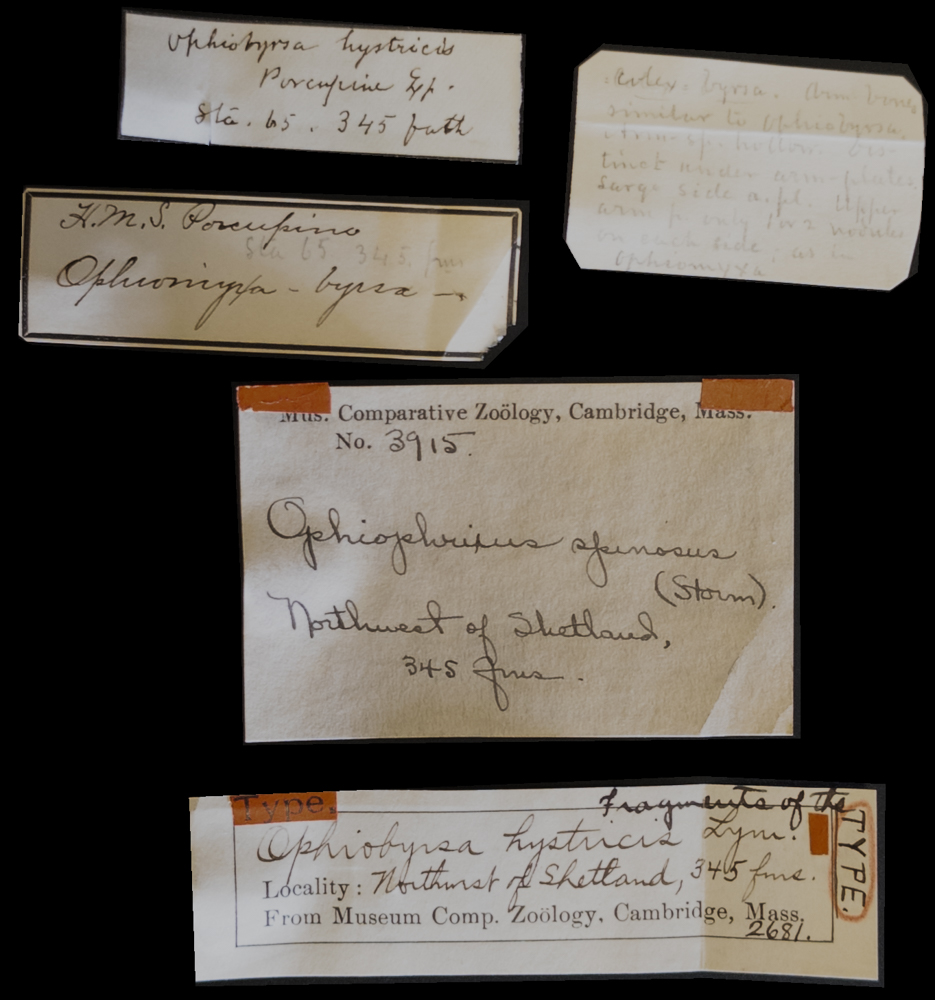 Ophiobyrsa hystricis
Porcupine Exp.
Sta. 65. 345 fath
byrsa. Arm bones
similar to Ophiobyrsa.
Arm-sp. hollow. Dis-
tinct under arm-plates.
Large side a.pl. Upper
arm p. only 1 or 2 nodules
on each side; as in
Ophiomyxa
H.M.S. Porcupine
Sta 65 345 fms
Ophiomyxa - byrsa -
Mus. Comparative Zoölogy, Cambridge, Mass.
No. 3915.
Ophiophrixus spinosus
(Storm).
Northwest of Shetland,
345 fms.
Type. Fragments of the
Ophiobyrsa hystricis Lym.
TYPE.
Locality: Northwest of Shetland, 345 fms.
From Museum Comp. Zoölogy, Cambridge, Mass.
2681.